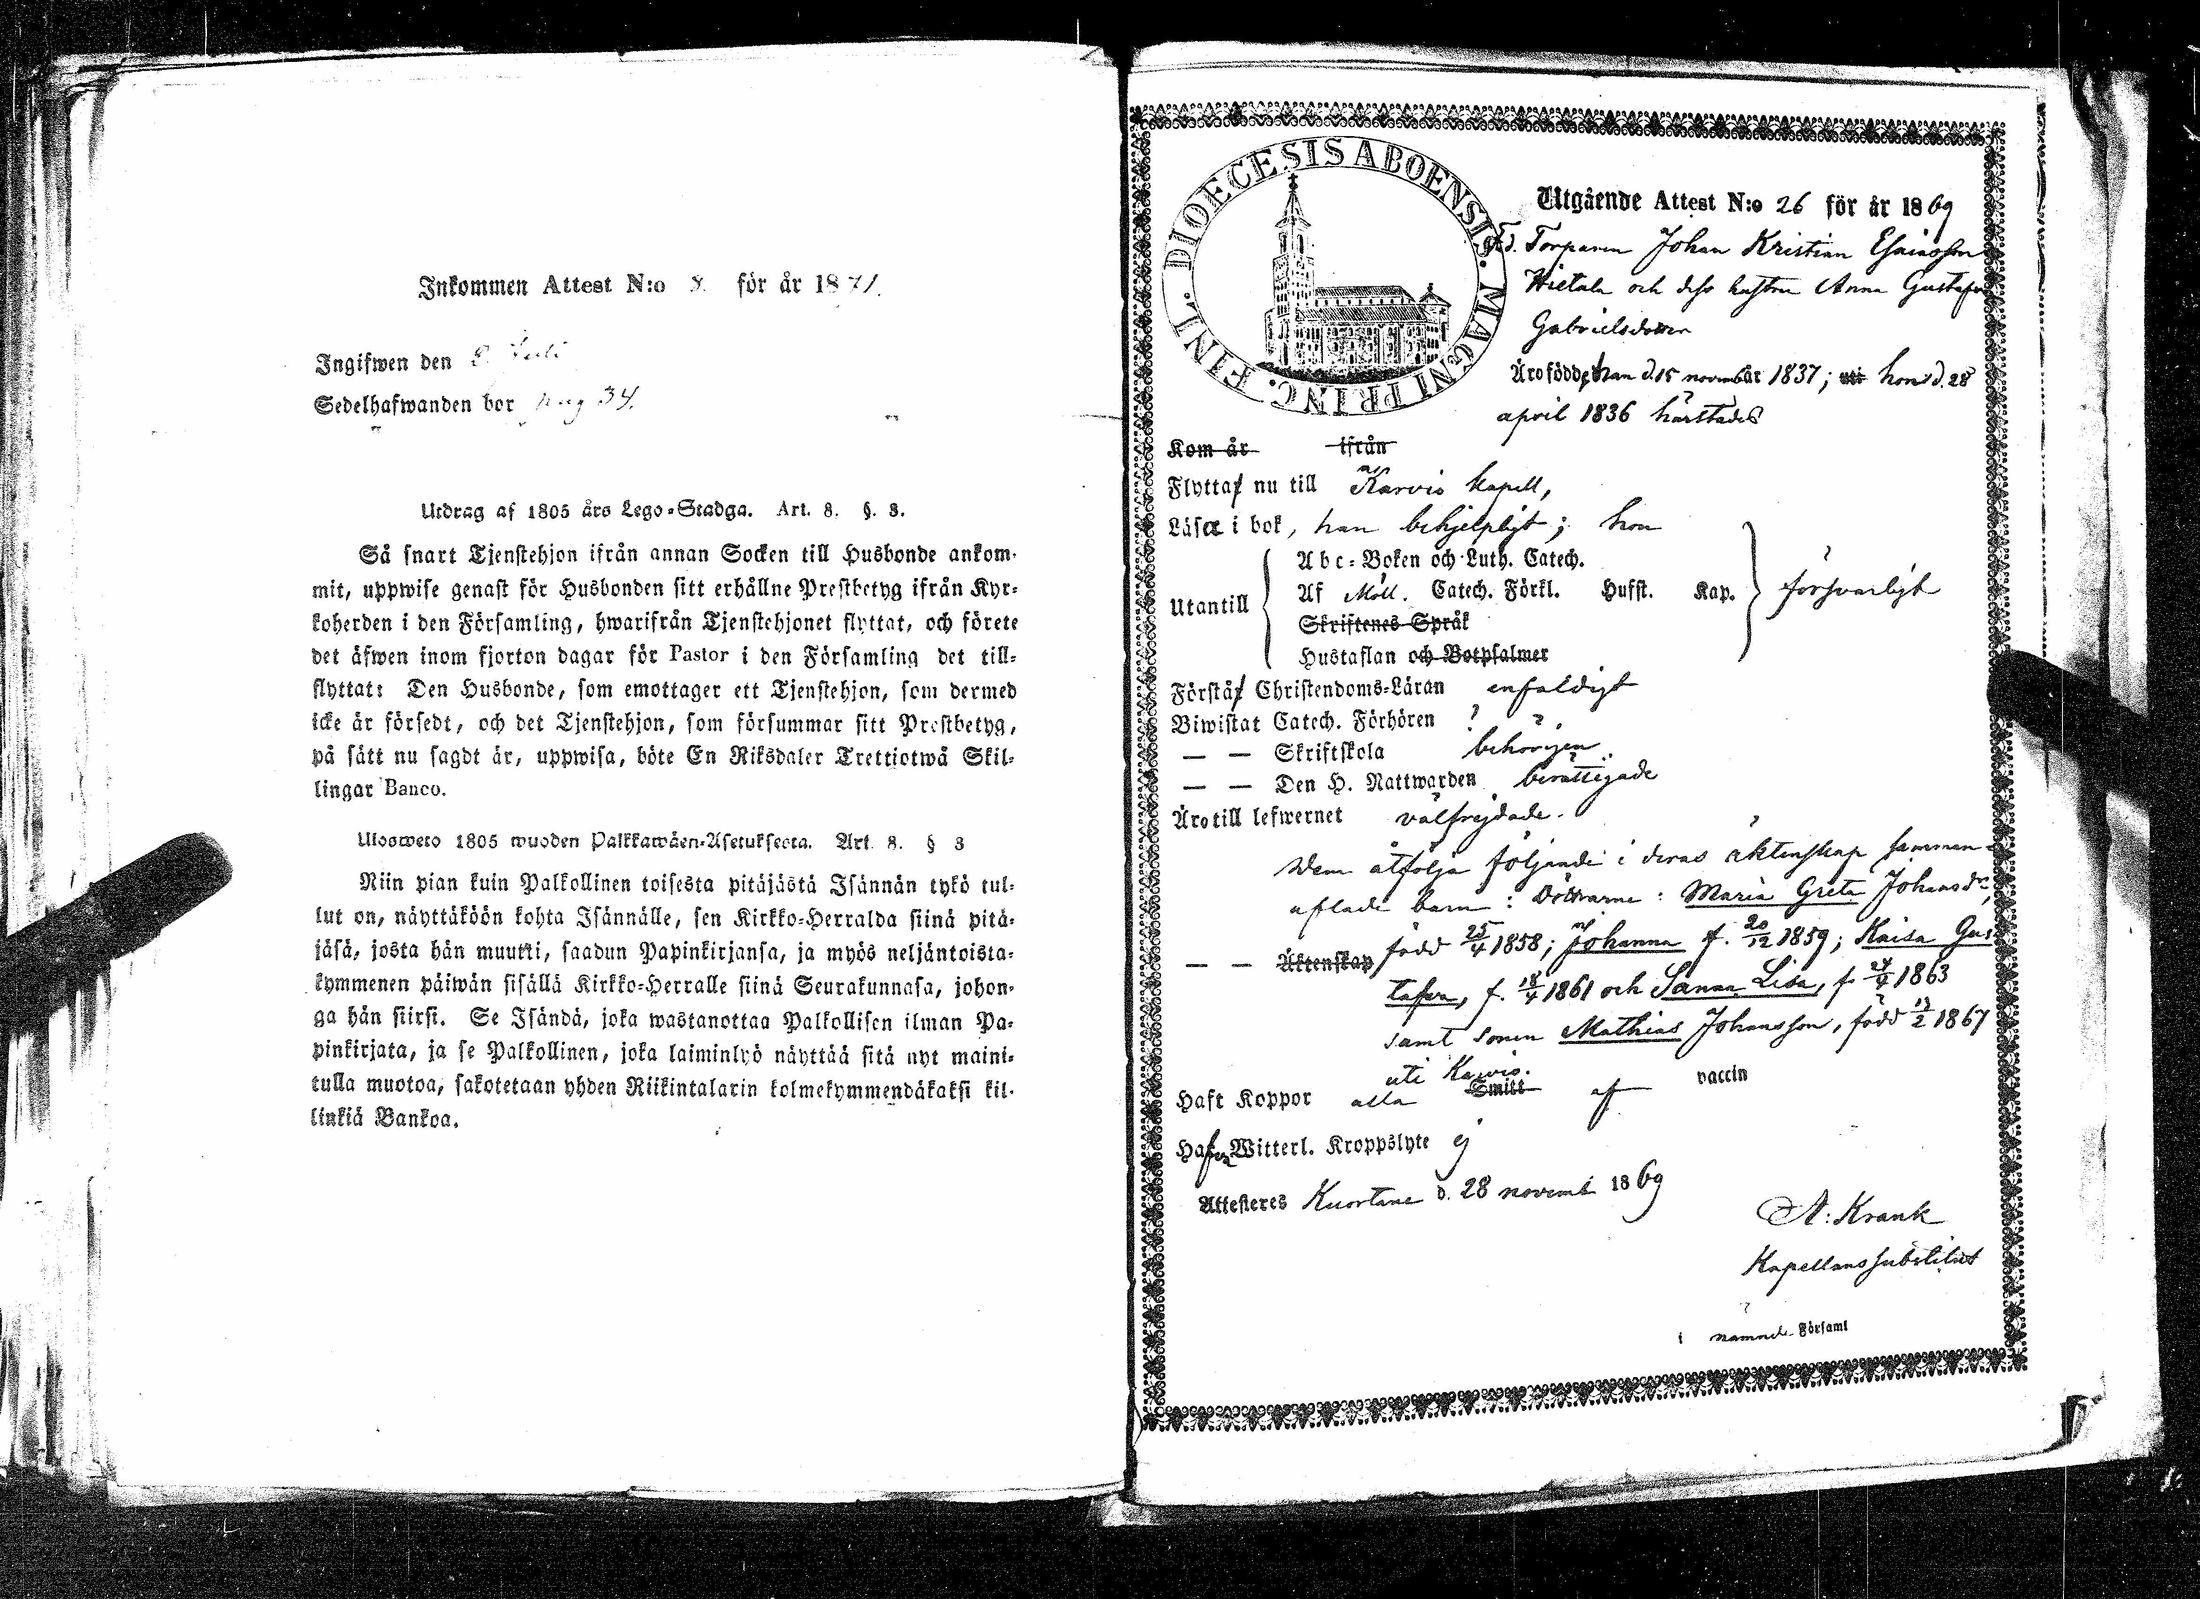 Inkommen Attest N:o 8. för år 1871.
Ingifwen den 8 Juli
Sedelhafwanden bor pag 34.
Utdrag af 1805 års Lego-Stadga. Art. 8. §. 3.
Så snart Tjenstehjon ifrån annan Socken till Husbonde ankom-
mit, uppwise genast för Husbonden sitt erhållne Prestbetyg ifrån Kyr-
koherden i den Församling, hwarifrån Tjenstehjonet flyttat, och förete
det äfwen inom fjorton dagar för Pastor i den Församling det till-
flyttat: Den Husbonde, som emottager ett Tjenstehjon, som dermed
icke är försedt, och det Tjenstehjon, som försummar sitt Prestbetyg,
på sätt nu sagdt är, uppwisa, böte En Riksdaler Trettiotwå Skil-
lingar Banco.
Ulosweto 1805 wuoden Palkkawäen-Asetuksesta. Art. 8. § 3
Niin pian kuin Palkollinen toisesta pitäjästä Isännän tykö tul-
lut on, näyttäköön kohta Isännälle, sen Kirkko-Herralda siinä pitä-
jäsä, josta hän muutti, saadun Papinkirjansa, ja myös neljäntoista-
kymmenen päiwän sisällä Kirkko-Herralle siinä Seurakunnasa, johon-
ga hän siirsi. Se Isändä, joka wastanottaa Palkollisen ilman Pa-
pinkirjata, ja se Palkollinen, joka laiminlyö näyttää sitä nyt maini-
tulla muotoa, sakotetaan yhden Riikintalarin kolmekymmendäkaksi kil-
linkiä Bankoa.
DIOECESIS ABOENSIS. MAGNI PRINC. FINL.
Utgående Attest N:o 26 för år 1869
Fd. Torparen Johan Kristian Esaiasson
Hietala och dess hustru Anna Gustafva
Gabrielsdotter
Äro födde, han d. 15 novemb år 1837; uti hon d. 28
april 1836 härstädes
Kom år ifrån
Flytta nu till Karvia kapell,
Läsa i bok, han behjelpligt; hon
Utantill
Abc-Boken och Luth. Catech.
Af Möll. Catech. Förkl. Hufst. Kap. försvarligt
Skriftenes Språk
Hustaflan och Botpsalmer
Förstå Christendoms-Läran enfaldigt
Biwistat Catech. Förhören
— — Skriftskola behörigen
— — Den H. Nattwarden berättigade
Äro till lefwernet välfrejdade.
Dem åtfölja följande i deras äktenskap samman-
aflade barn: Döttrarne: Maria Greta Johansdr,
— — Äktenskap född 25/4 1858; Johanna f. 20/12 1859; Kaisa Gus-
tafva, f. 18/4 1861 och Sanna Lisa, f. 27/9 1863
samt sonen Mathias Johansson, född 17/2 1867
uti Karvia.
Haft Koppor alla Smitt af vaccin
Hafva Witterl. Kroppslyte ej
Attesteres Kuortane d. 28 novemb 1869
A: Krank
Kapellanssubstitut
i nämnde Församl